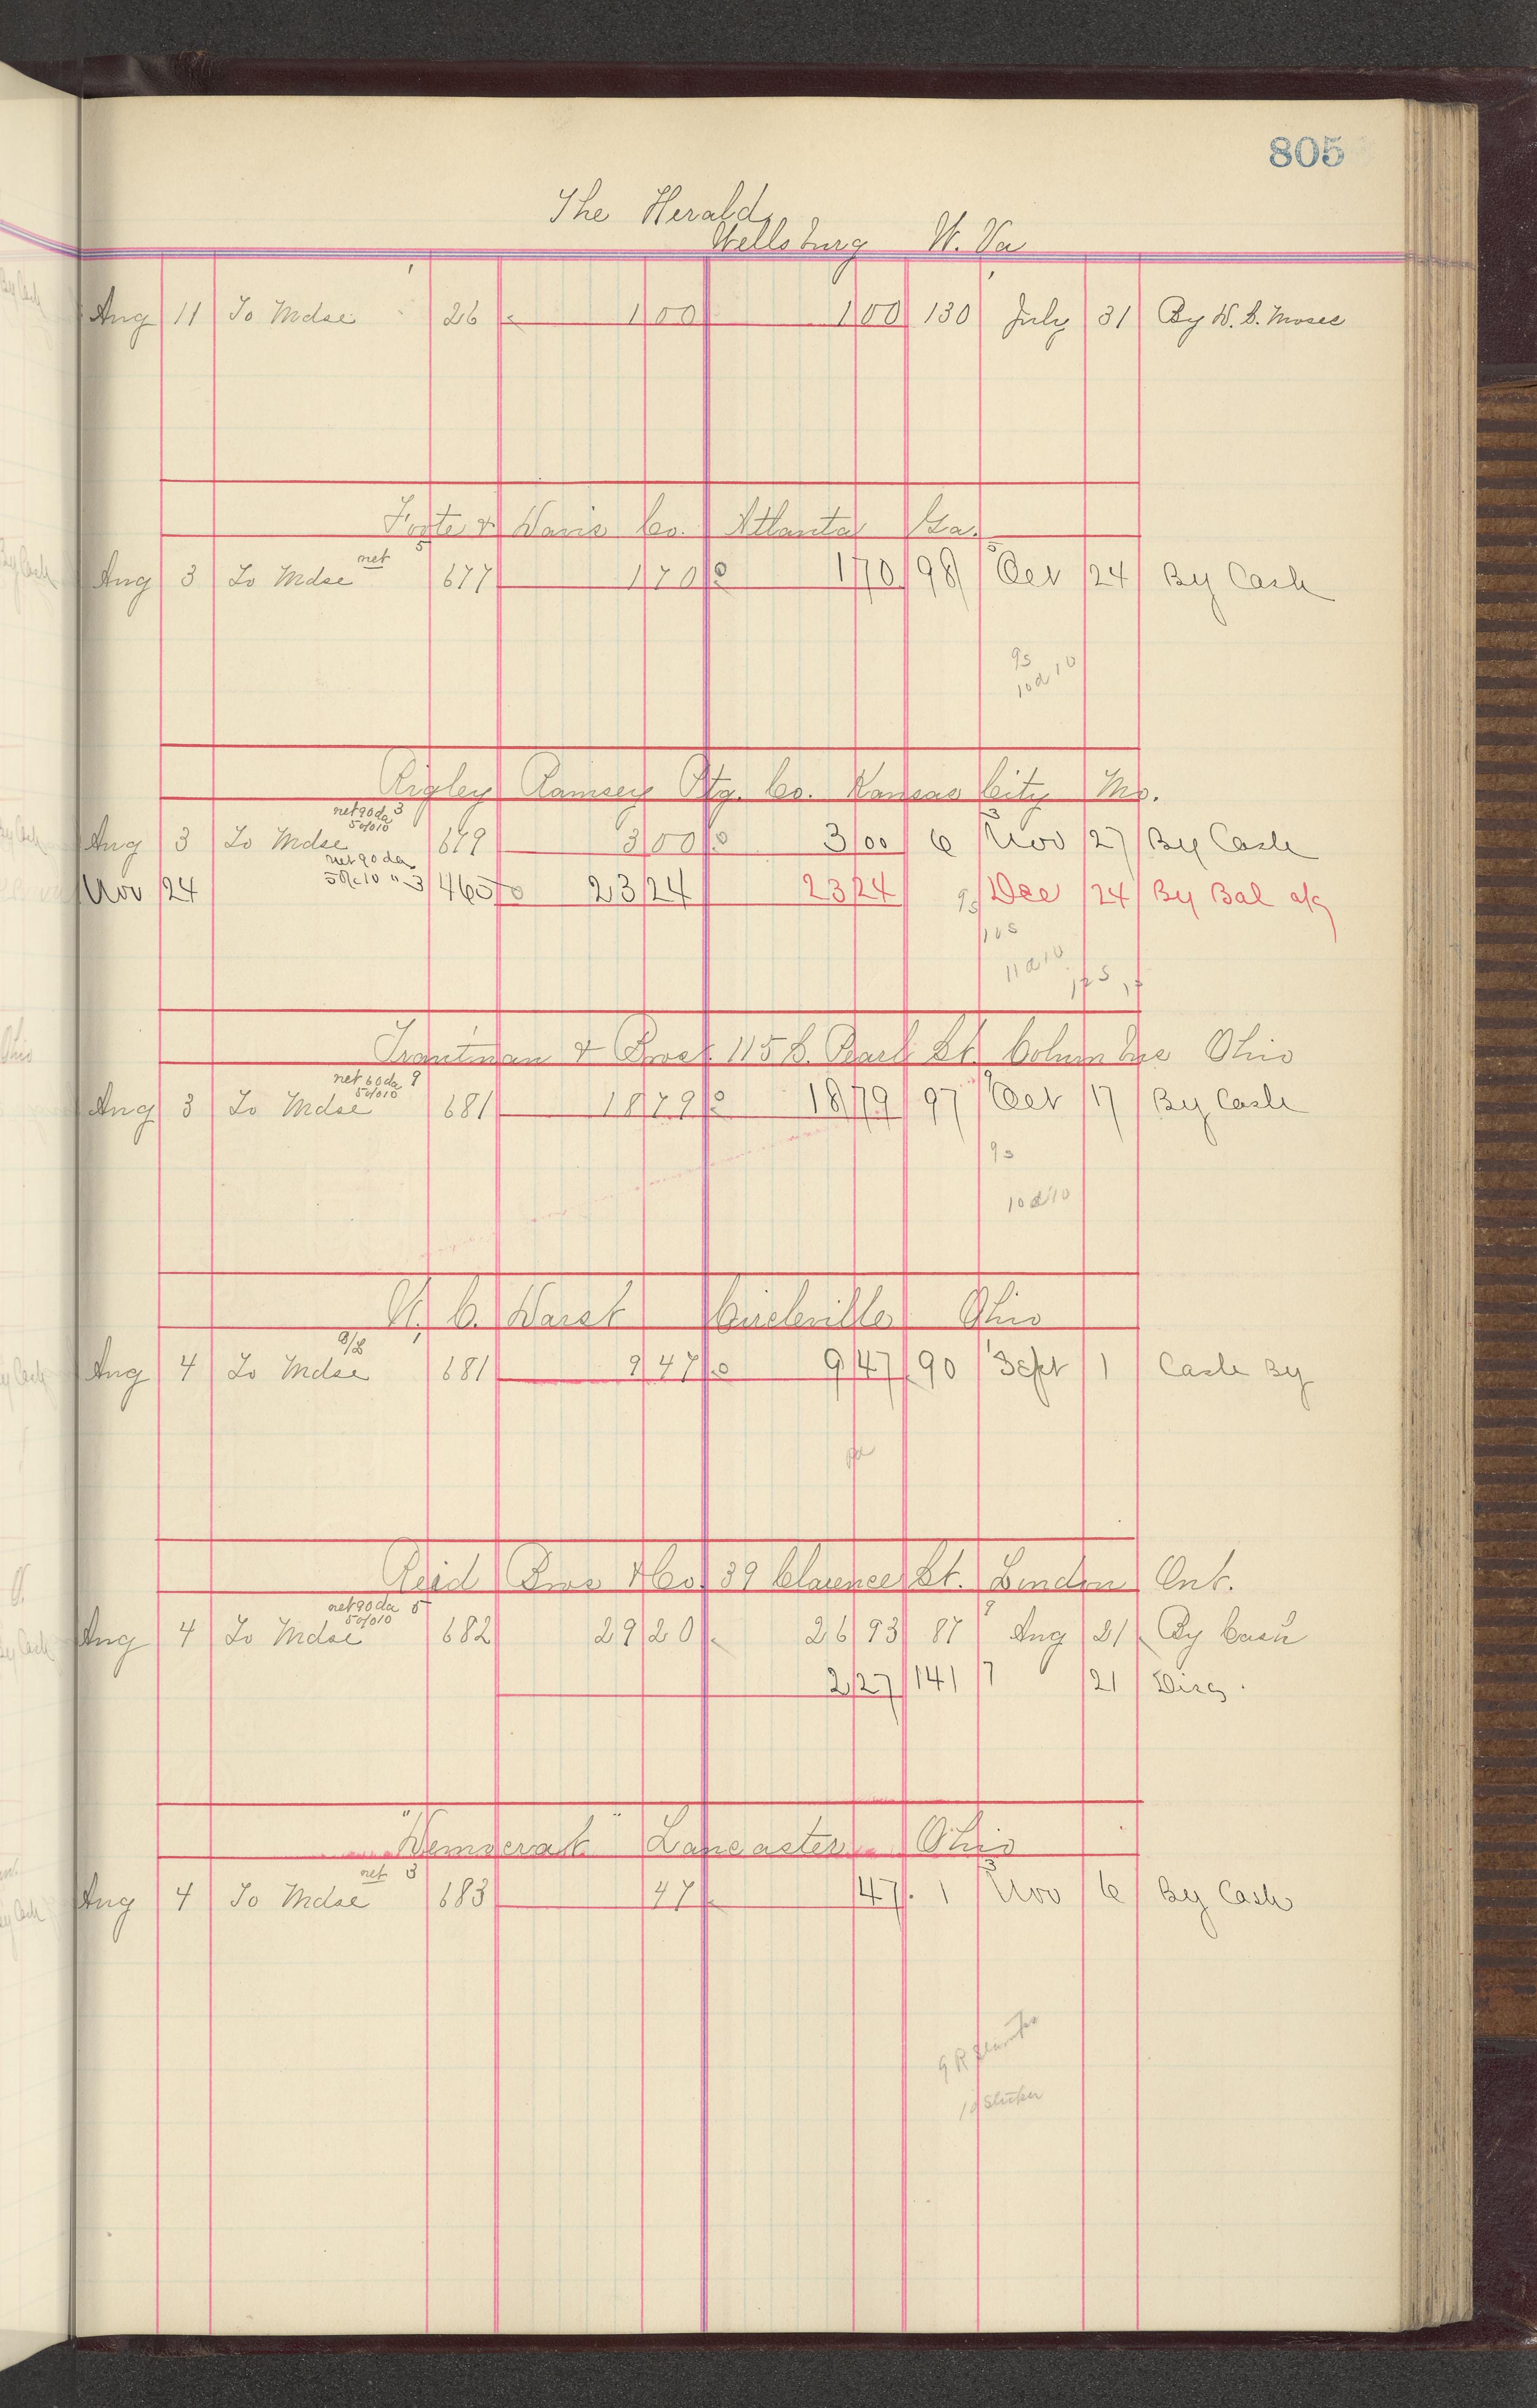 805
The Herald,
Wellsburg W. Va
Aug 11 To Mdse 26 1 00 1 00 130 July 31 By W. S. Moses
Foote & Davis Co. Atlanta Ga.
net 5
Aug 3 To Mdse 677 1 70 1 70 98 Oct 24 By Cash
9s
10 d 10
Rigley Ramsey Ptg. Co. Kansas City Mo.
net 90 da 3
5% 10
Aug 3 To Mdse 679 3 00 3 00 6 Nov 27 By Cash
net 90 da
5% 10 " 3
Nov 24 465 23 24 23 24 Dec 24 By Bal a/c
9s
10s
11 d 10
Trautman & Bros. 115 S. Pearl St. Columbus Ohio
net 60 da 9
5% 10
Aug 3 To Mdse 681 18 79 18 79 97 Oct 17 By Cash
9s
10 d 10
Circleville Ohio
Aug 4 To Mdse 681 9 47 9 47 90 Sept 1 Cash By
pd
Reid Bros & Co. 39 Clarence St. London Ont.
net 90 da 5
5% 10
Aug 4 To Mdse 682 29 20 26 93 87 Aug 21 By Cash
2 27 141 7 21 Disc.
"Democrat" Lancaster Ohio
net 3
Aug 4 To Mdse 683 47 47 1 Nov 6 By Cash